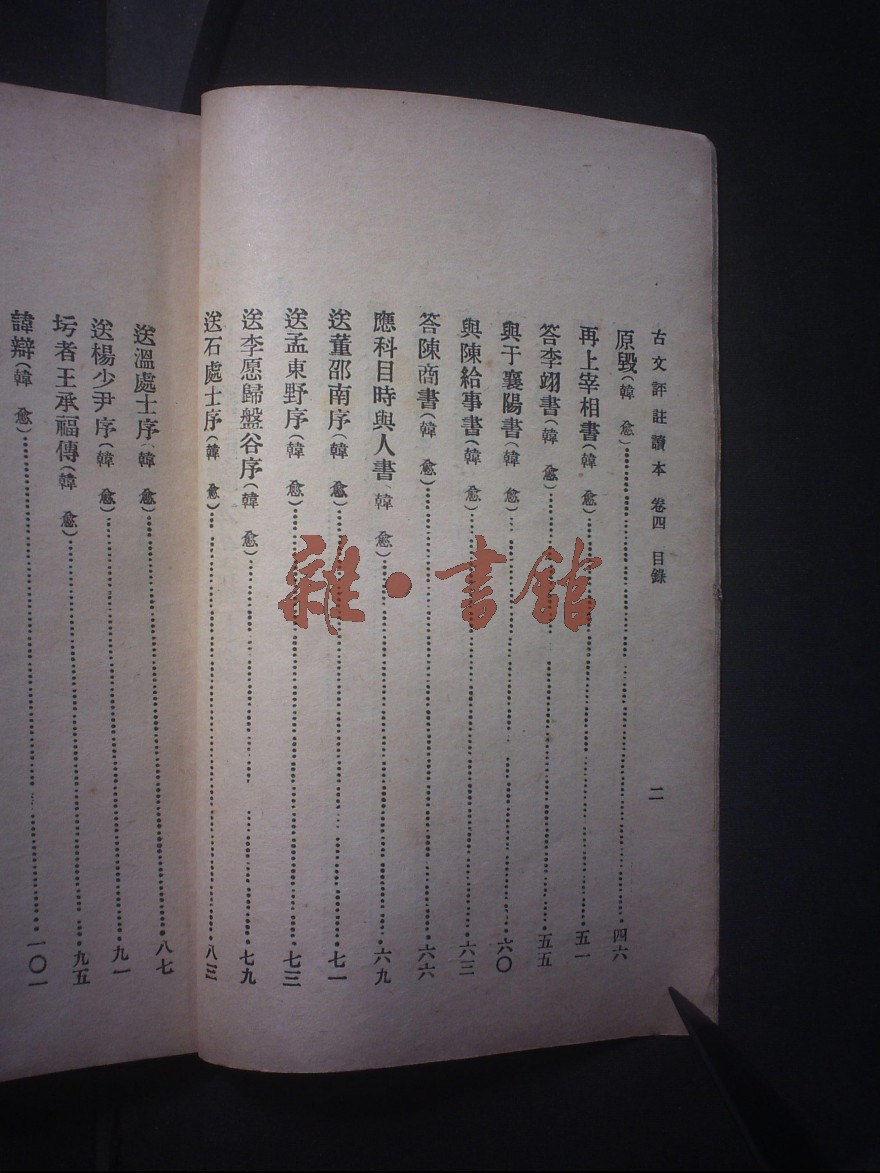 古文評註讀本 卷四 目錄 二
原毀(韓愈)⋯⋯四六
再上宰相書(韓愈)⋯⋯五一
答李翊書(韓愈)⋯⋯五五
與于襄陽書(韓愈)⋯⋯六〇
與陳給事書(韓愈)⋯⋯六三
答陳商書(韓愈)⋯⋯六六
應科目時與人書(韓愈)⋯⋯六九
送董邵南序(韓愈)⋯⋯七一
送孟東野序(韓愈)⋯⋯七三
送李愿歸盤谷序(韓愈)⋯⋯七九
送石處士序(韓愈)⋯⋯八三
送溫處士序(韓愈)⋯⋯八七
送楊少尹序(韓愈)⋯⋯九一
圬者王承福傳(韓愈)⋯⋯九五
諱辯(韓愈)⋯⋯一〇一
雜·書館